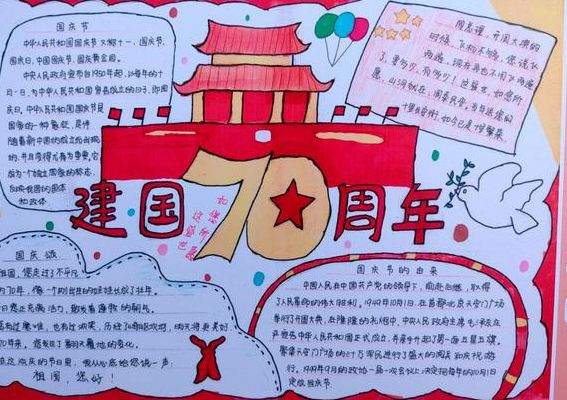 国庆节
中华人民共和国国庆节又称十一、国庆节、
国庆日、中国国庆节、国庆黄金周。
中华人民政府宣布自1950年起,以每年的十
月一日,为中华人民共和国宣告成立的日子,即国
庆日。中华人民共和国国庆节是
国家的一种象征,是伴
随着新中国的成立而出现
的,并且变得尤为重要。它
成为一个独立国家的标志,
反映我国的国体
和政体。
周总理,开国大典的
时候,飞机不够,您说飞
两遍,现在再也不用飞两遍
了,要多少,有多少!这盛世,如您所
愿,山河犹在,国泰民安。当年送您的
十里长安街,如今已是十里繁荣。
建国70周年
国庆颂
祖国,您走过了不平凡
的70年,像一个刚出生的娃娃长成了壮年。
今日您正充满活力,散发着蓬勃的朝气。
虽有过磨难,也有过欢笑,历经了
70年来,您发生了翻天覆地的变化。
在这欢庆的节日里,我从心底给您说一声:
祖国,您好!
国庆节的由来
中国人民在中国共产党的领导下,前赴后继,取得
了人民革命的伟大胜利。1949年10月1日,在首都北京天安门广场
举行了开国大典,在隆隆的礼炮中,中央人民政府主席毛泽东庄
严宣告中华人民共和国正式成立,并亲手升起了第一面五星红旗。
聚集天安门广场的三十万军民进行了盛大的阅兵和庆祝游
行。1949年9月的政协一届一次会议上决定把每年的10月1日
定做国庆节。